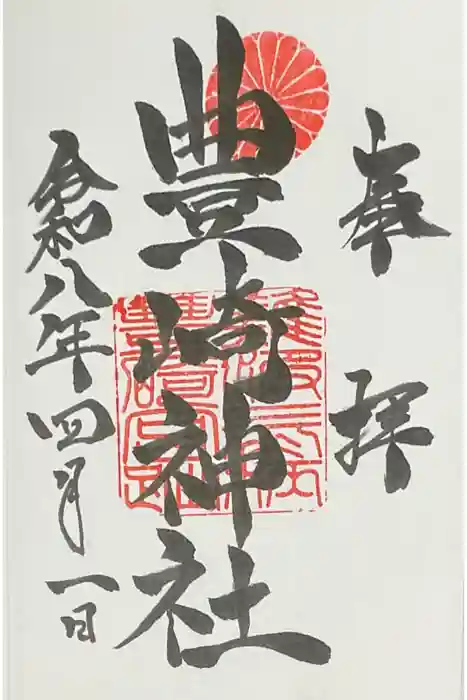 奉拝
豊崎神社
令和八年四月一日